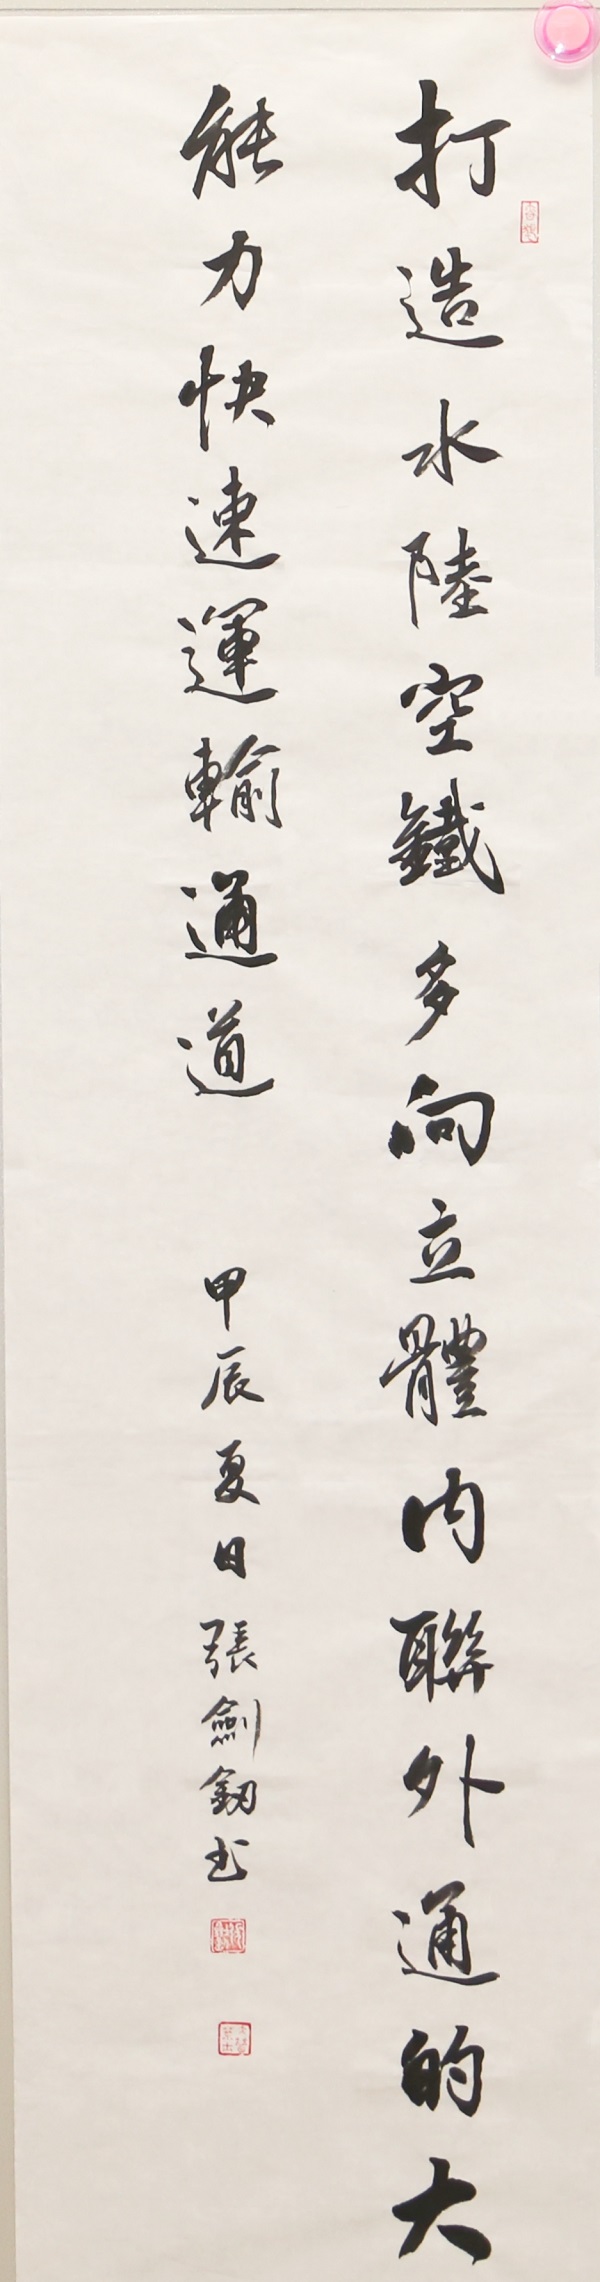 打造水陸空鐵多向立體內聯外通的大
能力快速運輸通道
甲辰夏日張劍釰书